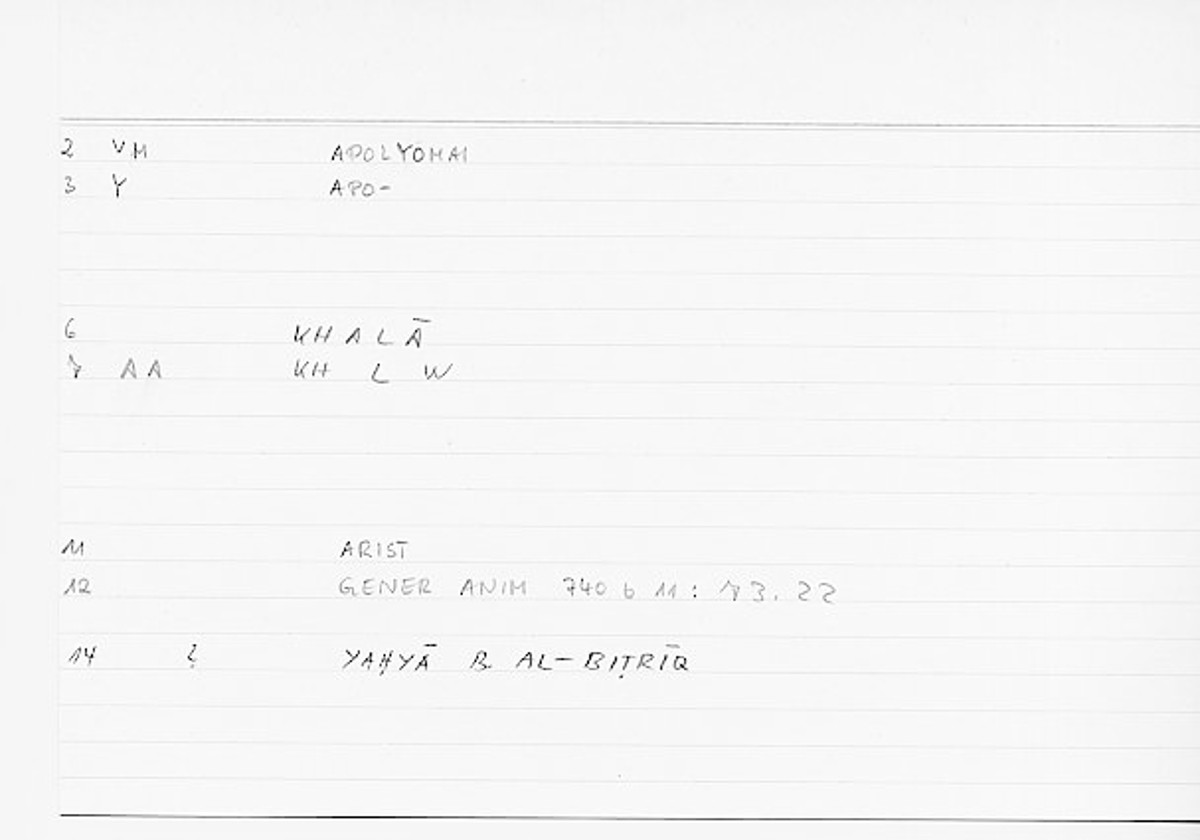 2 VM APOLYOMAI
3 Y APO-
6 KHALĀ
7 AA KH L W
11 ARIST
12 GENER ANIM 740 b 11: 73.22
14 YAḤYĀ B. AL-BIṬRĪQ